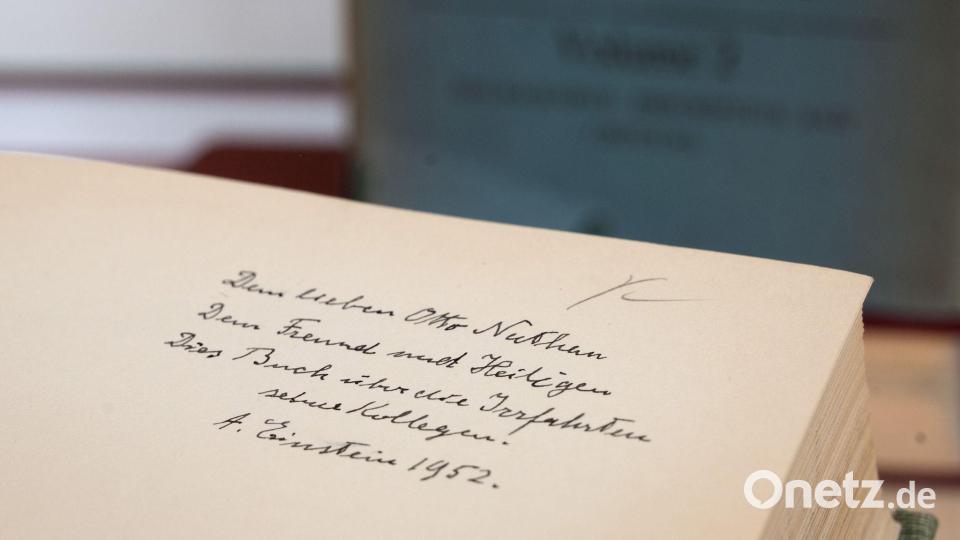 Volume 2
Dem lieben Otto Nathan
Dem Freund und Heiligen
Dies Buch über die Irrfahrten
seiner Kollegen.
A. Einstein 1952.
Onetz.de